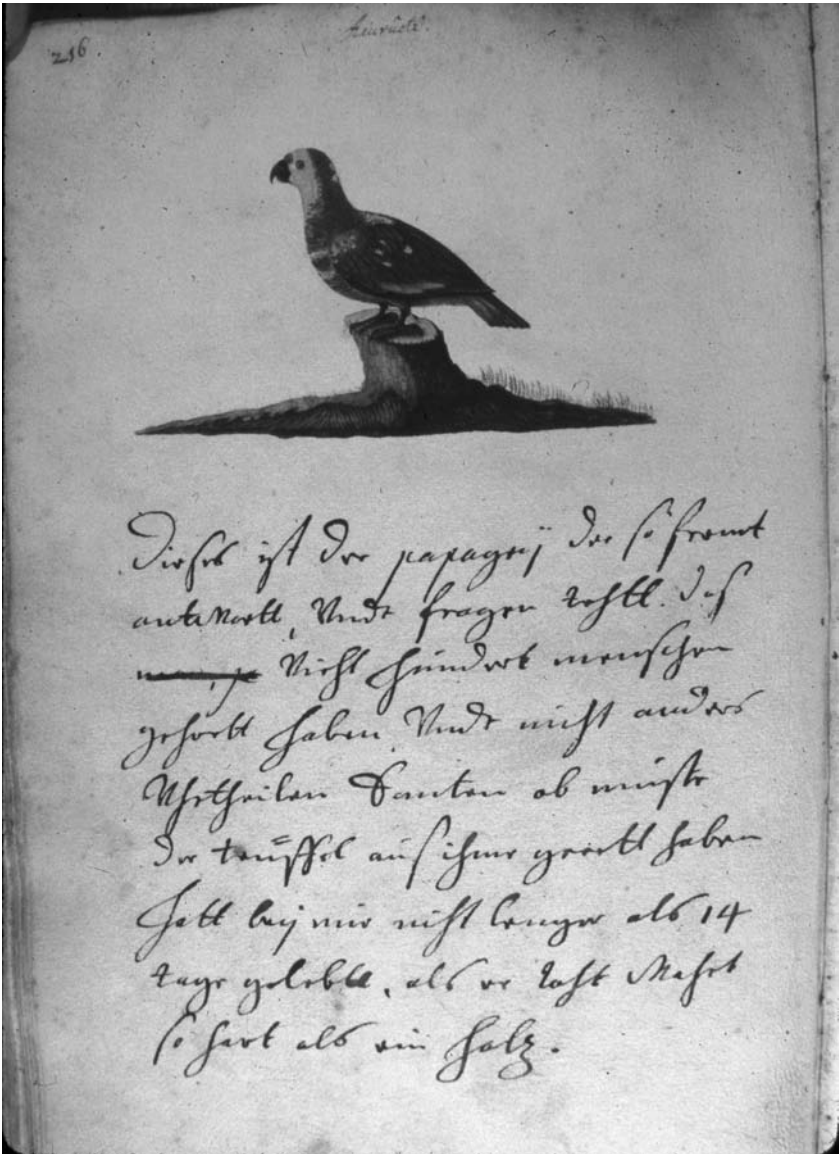 216
Dießes ist der papageÿ der so fremt
antwortt, Undt fragen dohtt. das
Vieht hundert menschen
gehoert haben Undt nicht anders
Uhrtheilen Konten ob muste
der teuffel aus ihme gerett haben
hatt beÿ mir nicht lenger als 14
tage gelebtt, als er doht Wahrt
so hart als ein holtz.